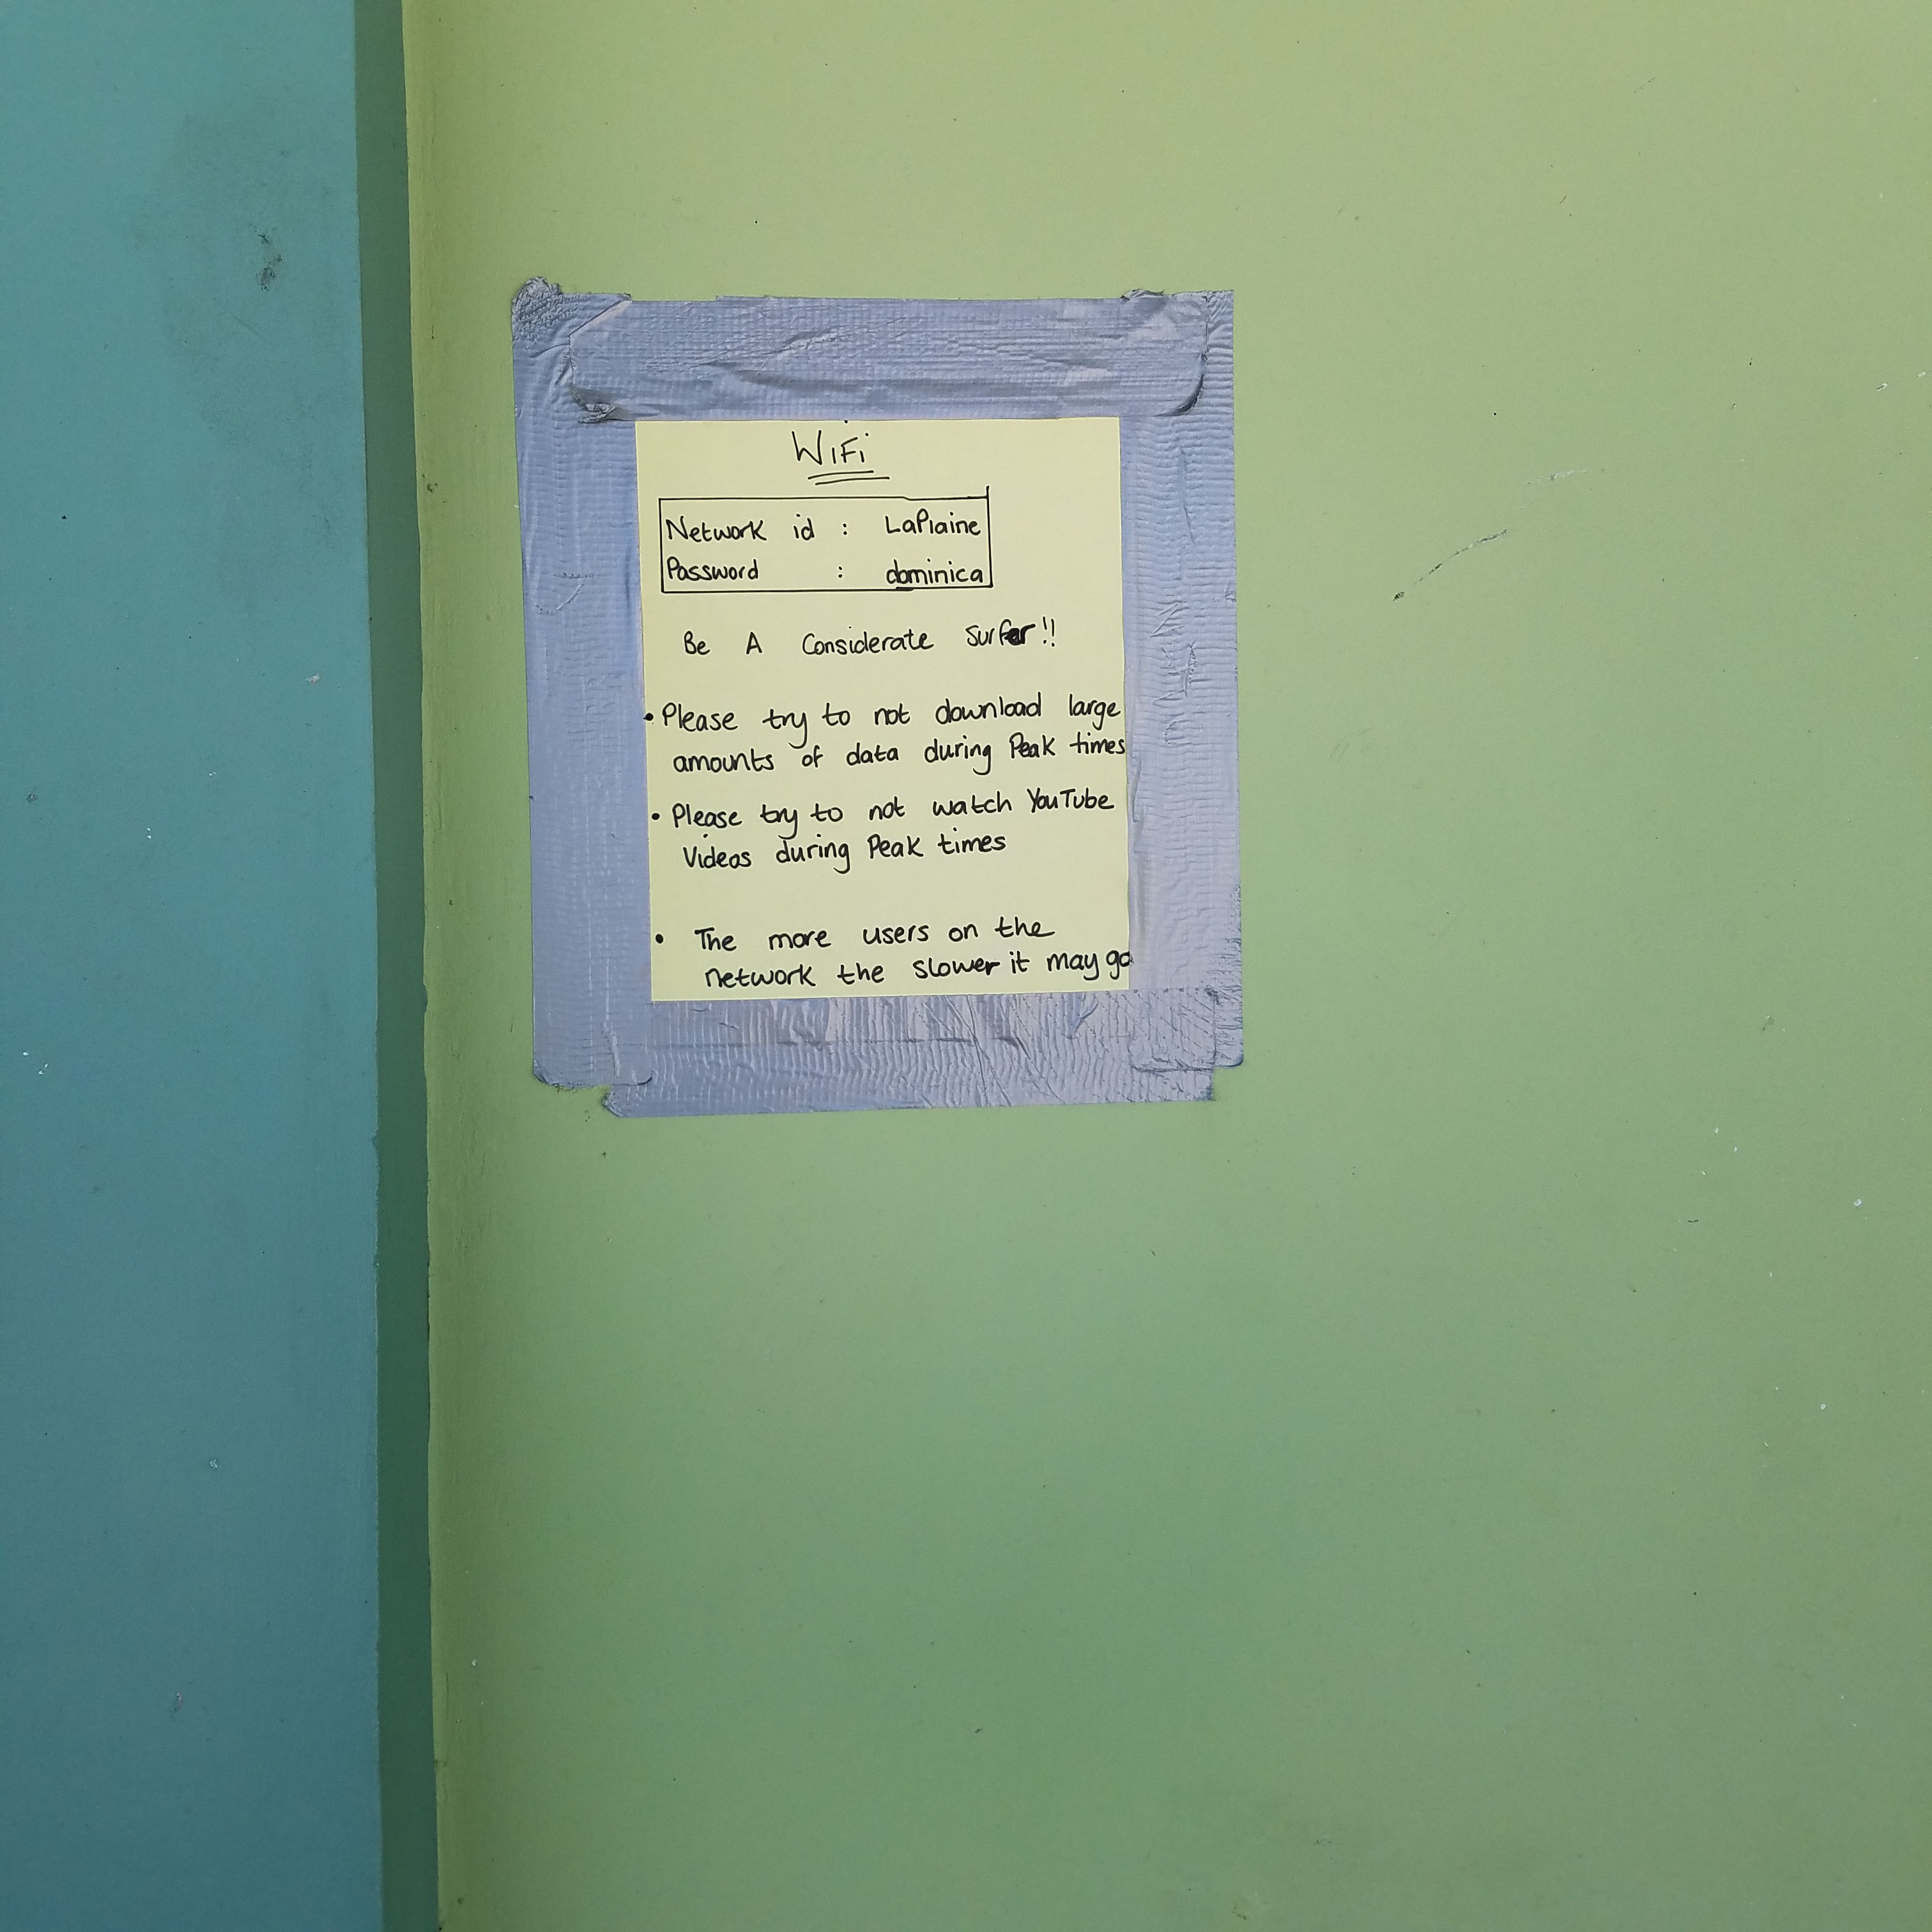 WiFi
Network id : LaPlaine
Password : dominica
Be A Considerate surfer!!
• Please try to not download large
amounts of data during Peak times
• Please try to not watch YouTube
Videos during Peak times
• The more users on the
network the slower it may go